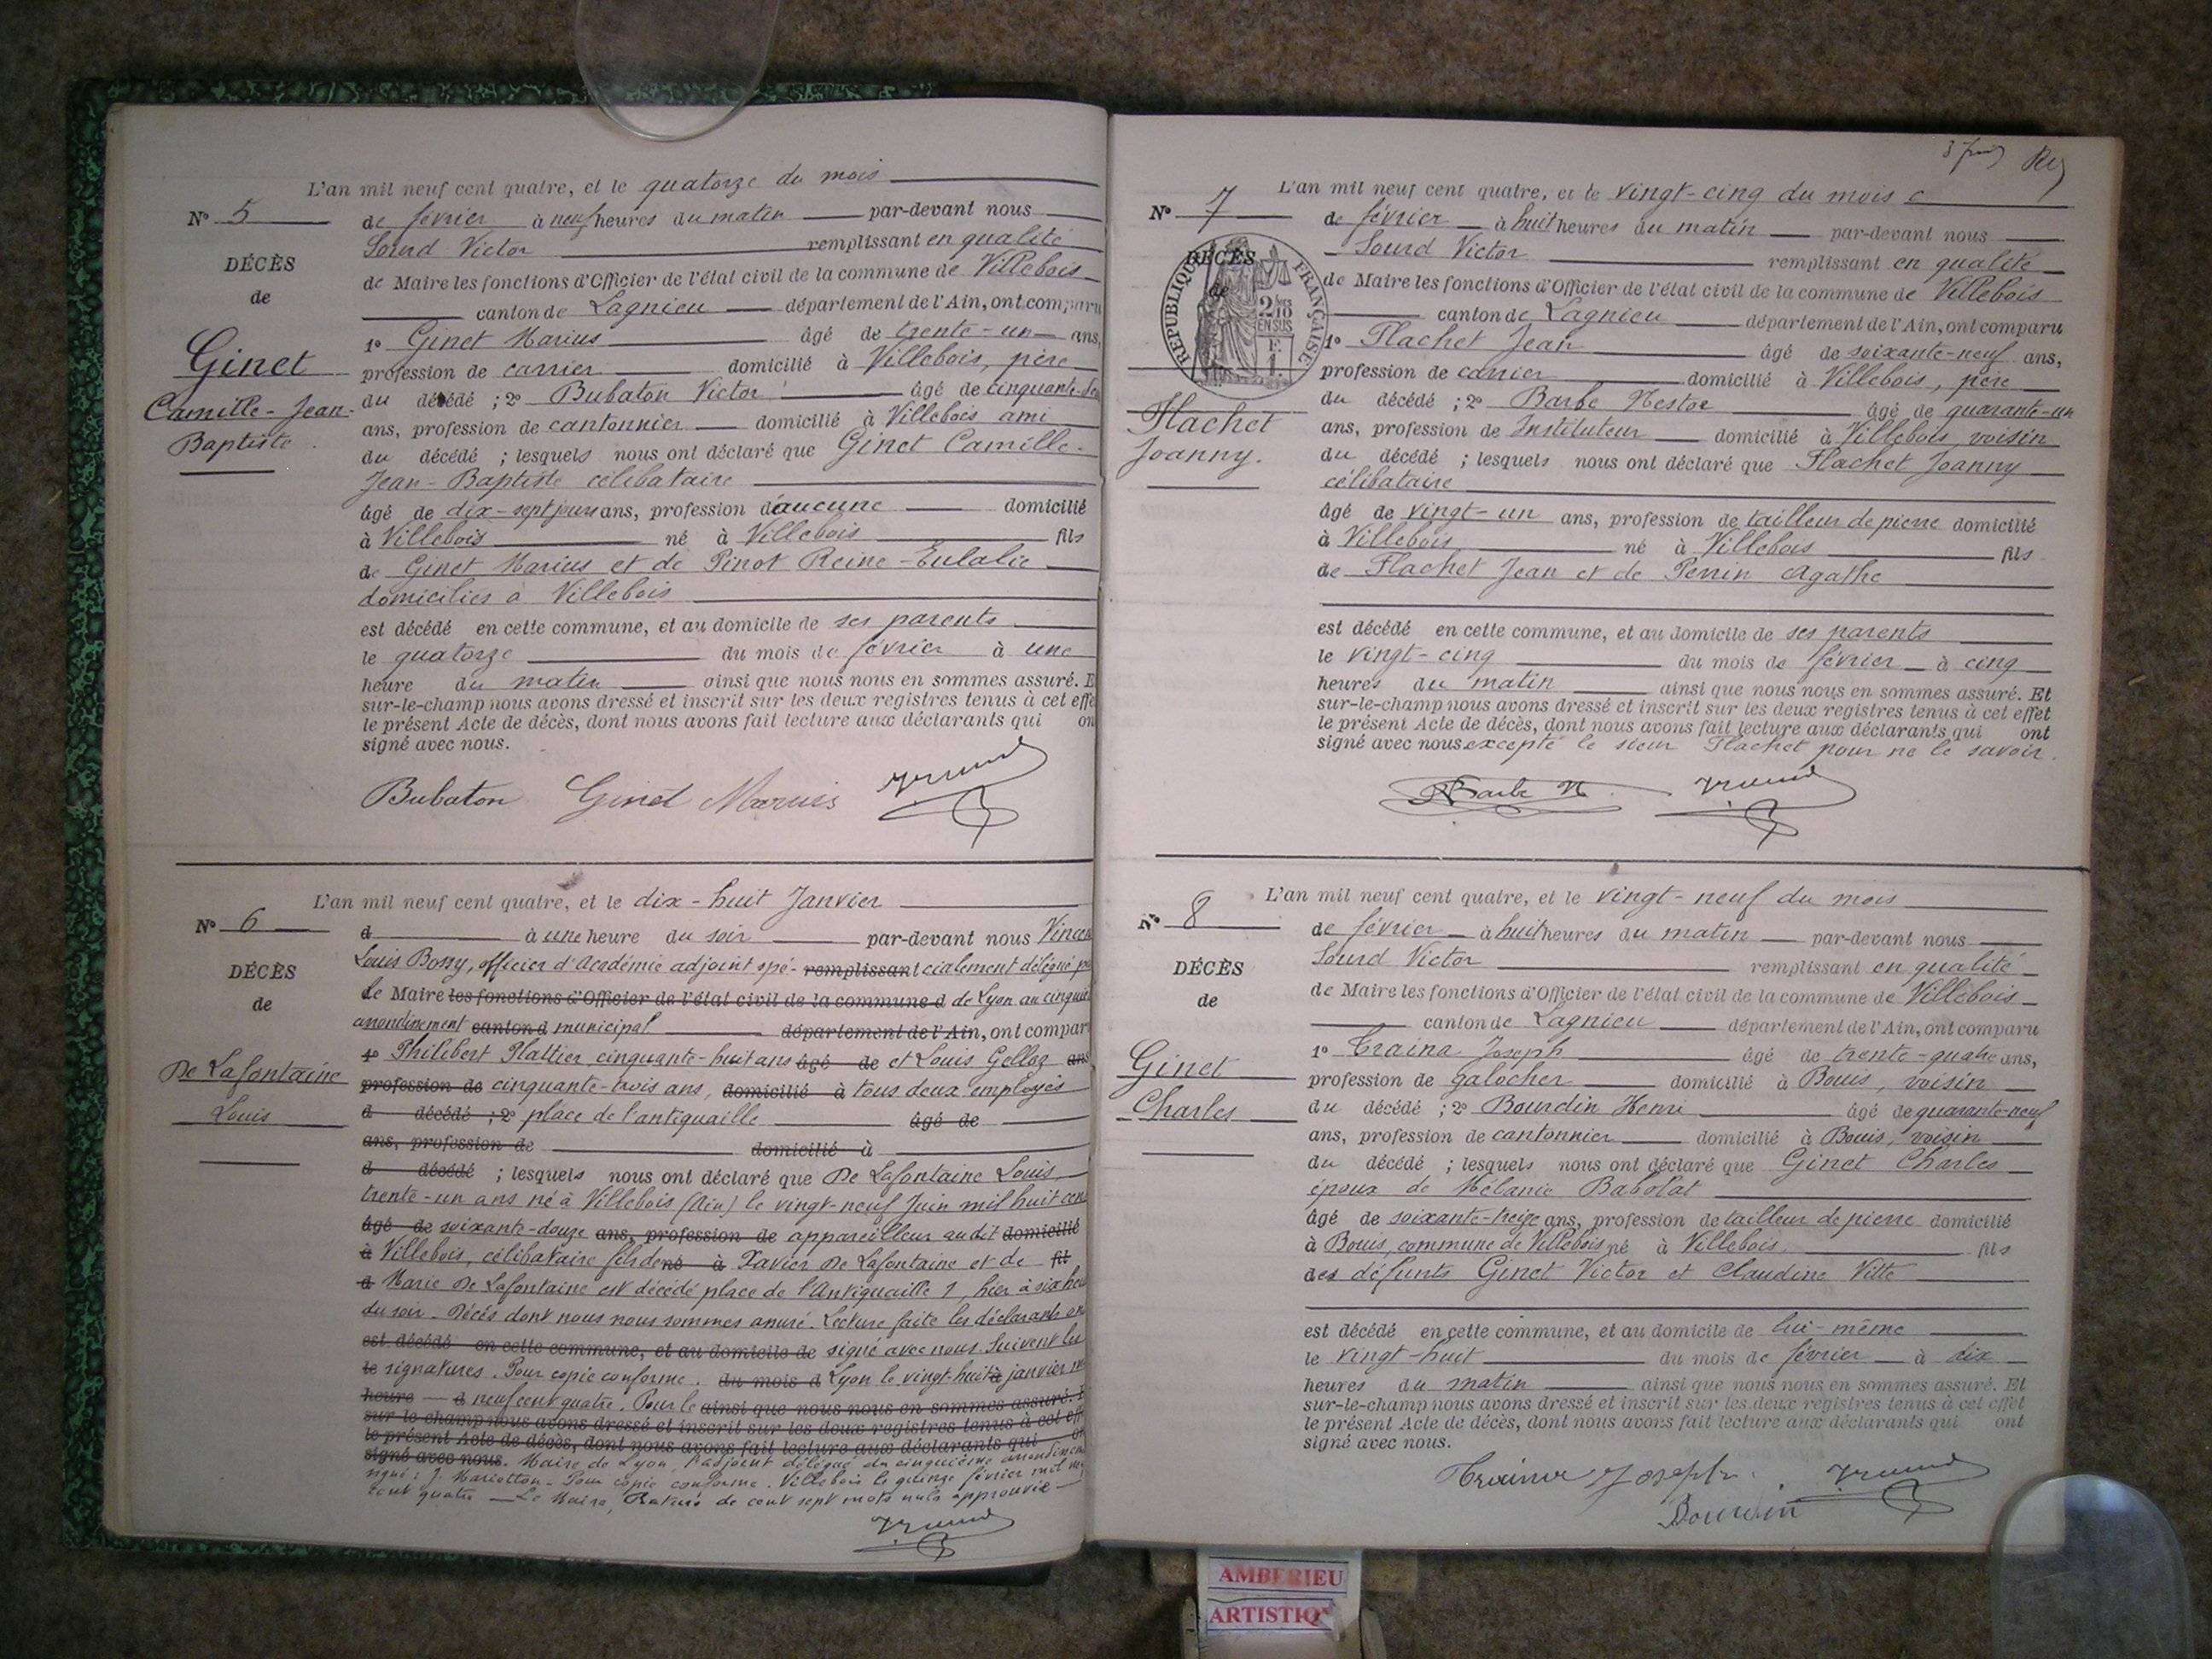 L'an mil neuf cent quatre, et le quatorze du mois
N° 5
de février à neuf heures du matin par-devant nous
Sourd Victor remplissant en qualité
DÉCÈS
de Maire les fonctions d'Officier de l'état civil de la commune de Villebois
de
canton de Lagnieu département de l'Ain, ont comparu
1° Ginet Marius âgé de trente-un ans,
Ginet
profession de carrier domicilié à Villebois, père
Camille-Jean-
du décédé ; 2° Bubaton Victor âgé de cinquante-
Baptiste.
ans, profession de cantonnier domicilié à Villebois ami
du décédé ; lesquels nous ont déclaré que Ginet Camille-
Jean-Baptiste célibataire
âgé de dix-sept jours ans, profession d'aucune domicilié
à Villebois né à Villebois fils
de Ginet Marius et de Pinot Reine-Eulalie
domiciliés à Villebois
est décédé en cette commune, et au domicile de ses parents
le quatorze du mois de février à une
heure du matin ainsi que nous nous en sommes assuré. E
sur-le-champ nous avons dressé et inscrit sur les deux registres tenus à cet effe
le présent Acte de décès, dont nous avons fait lecture aux déclarants qui on
signé avec nous.
Bubaton Ginet Marius
L'an mil neuf cent quatre, et le dix-huit Janvier
N° 6
d à une heure du soir par-devant nous Vincen
Louis Bossy, officier d'Académie adjoint spé- remplissant cialement délégué pa
DÉCÈS
le Maire les fonctions d'Officier de l'état civil de la commune d de Lyon au cinquiè
de
arrondissement canton d municipal département de l'Ain, ont compar
1° Philibert Plattier, cinquante-huit ans âgé de et Louis Gelloz ans
De Lafontaine
profession de cinquante-trois ans, domicilié à tous deux employés
Louis
d décédé ; 2° place de l'antiquaille âgé de
ans, profession de domicilié à
d décédé ; lesquels nous ont déclaré que De Lafontaine Louis,
trente-un ans né à Villebois (Ain) le vingt-neuf Juin mil huit cen
âgé de soixante-douze ans, profession de appareilleur au dit domicilié
à Villebois, célibataire fils de né à Xavier De Lafontaine et de fil
d Marie De Lafontaine est décédé place de l'Antiquaille 1, hier à six heu
du soir. Décès dont nous nous sommes assuré. Lecture faite les déclarants on
est décédé en cette commune, et au domicile de signé avec nous. Suivent les
le signatures. Pour copie conforme. du mois d Lyon le vingt-huit à janvier m
heure d neuf cent quatre. Pour le ainsi que nous nous en sommes assuré. E
sur-le-champ nous avons dressé et inscrit sur les deux registres tenus à cet eff
le présent Acte de décès, dont nous avons fait lecture aux déclarants qui on
signé avec nous. Maire de Lyon, l'adjoint délégué du cinquième arrondissem
signé : J. Mariotton - Pour copie conforme. Villebois le quinze février mil ne
cent quatre - Le Maire, Rature de cent sept mots nuls approuvée
L'an mil neuf cent quatre, et le vingt-cinq du mois
N° 7
de février à huit heures du matin par-devant nous
Sourd Victor remplissant en qualité
DÉCÈS
de
RÉPUBLIQUE FRANÇAISE
2/10 EN SUS
F. 1.
de Maire les fonctions d'Officier de l'état civil de la commune de Villebois
canton de Lagnieu département de l'Ain, ont comparu
1° Flachet Jean âgé de soixante-neuf ans,
profession de carrier domicilié à Villebois, père
Flachet
du décédé ; 2° Barbe Nestor âgé de quarante-un
ans, profession de Instituteur domicilié à Villebois, voisin
Joanny.
du décédé ; lesquels nous ont déclaré que Flachet Joanny
célibataire
âgé de vingt-un ans, profession de tailleur de pierre domicilié
à Villebois né à Villebois fils
de Flachet Jean et de Perrin Agathe
est décédé en cette commune, et au domicile de ses parents
le vingt-cinq du mois de février à cinq
heures du matin ainsi que nous nous en sommes assuré. Et
sur-le-champ nous avons dressé et inscrit sur les deux registres tenus à cet effet
le présent Acte de décès, dont nous avons fait lecture aux déclarants qui ont
signé avec nous excepté le sieur Flachet pour ne le savoir.
Barbe N.
L'an mil neuf cent quatre, et le vingt-neuf du mois
N° 8
de février à huit heures du matin par-devant nous
Sourd Victor remplissant en qualité
DÉCÈS
de Maire les fonctions d'Officier de l'état civil de la commune de Villebois
de
canton de Lagnieu département de l'Ain, ont comparu
1° Craina Joseph âgé de trente-quatre ans,
Ginet
profession de galocher domicilié à Bouis, voisin
Charles
du décédé ; 2° Bourdin Henri âgé de quarante-neuf
ans, profession de cantonnier domicilié à Bouis, voisin
du décédé ; lesquels nous ont déclaré que Ginet Charles
époux de Mélanie Babolat
âgé de soixante-treize ans, profession de tailleur de pierre domicilié
à Bouis, commune de Villebois né à Villebois fils
des défunts Ginet Victor et Claudine Vitte
est décédé en cette commune, et au domicile de lui-même
le vingt-huit du mois de février à dix
heures du matin ainsi que nous nous en sommes assuré. Et
sur-le-champ nous avons dressé et inscrit sur les deux registres tenus à cet effet
le présent Acte de décès, dont nous avons fait lecture aux déclarants qui ont
signé avec nous.
Craina Joseph.
Bourdin
AMBERIEU
ARTISTIQ